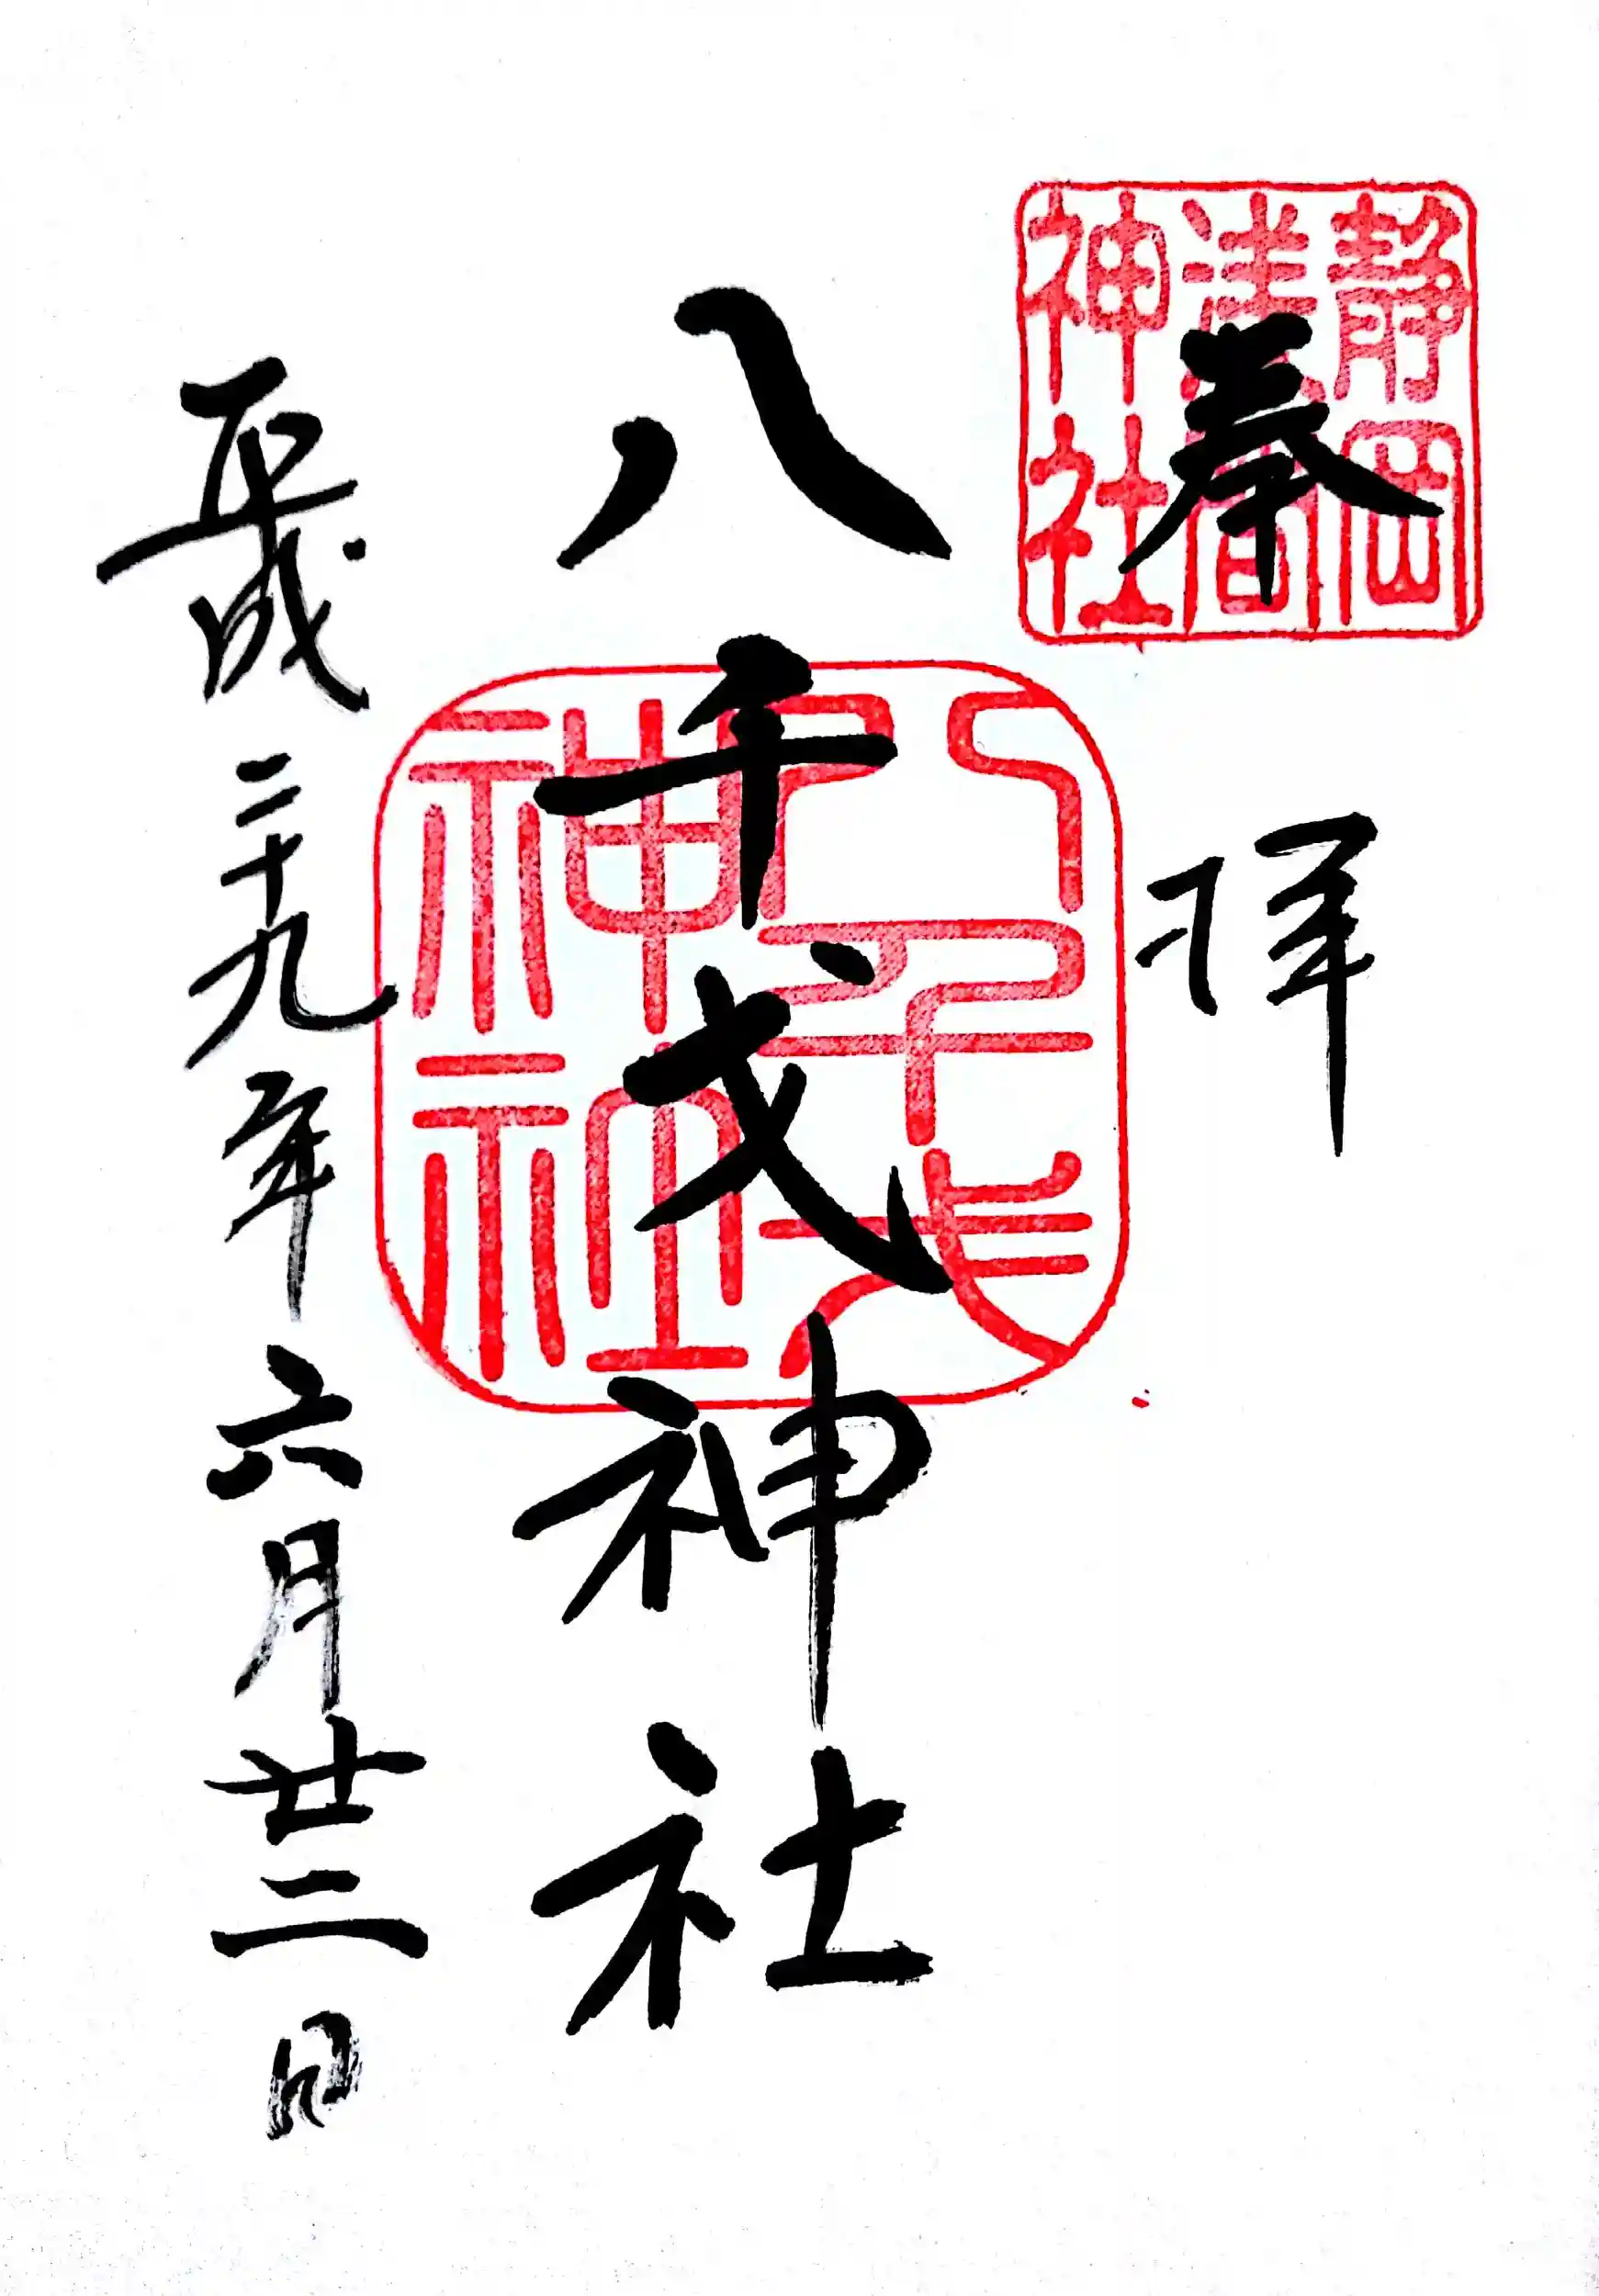 奉拝
靜岡
淺間
神社
八千戈神社
八千戈
神社
平成二十九年六月廿二日